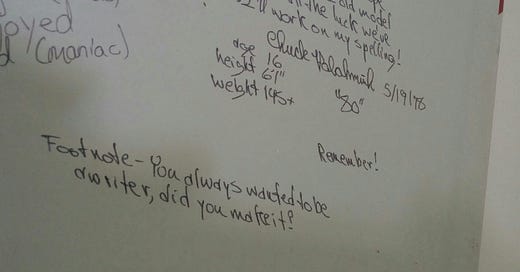 old model
all the luck we've
I'll work on my spelling!
oyed
(maniac)
Chuck Palahniuk 5/19/78
age 16
height 6'1"
weight 145+
"80"
Remember!
Footnote - You always wanted to be
a writer, did you make it?